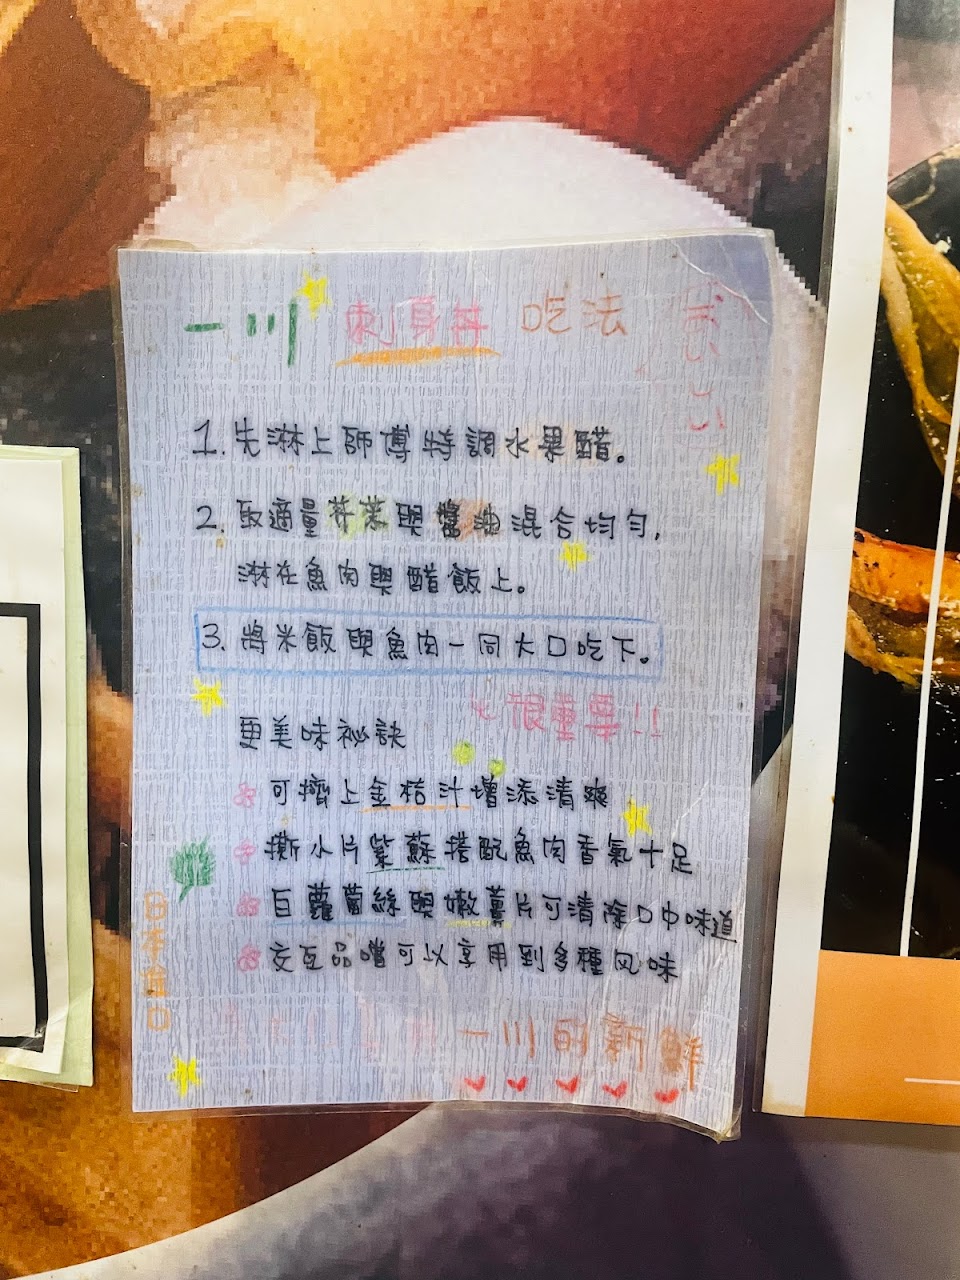 一川 刺身丼 吃法
1. 先淋上師傅特調水果醋。
2. 取適量芥茉與醬油混合均勻,
淋在魚肉與醋飯上。
3. 將米飯與魚肉一同大口吃下。
很重要!!
更美味祕訣
可擠上金桔汁增添清爽
撕小片紫蘇搭配魚肉香氣十足
白蘿蔔絲與嫩薑片可清除口中味道
交互品嚐可以享用到多種风味
一川的新鮮